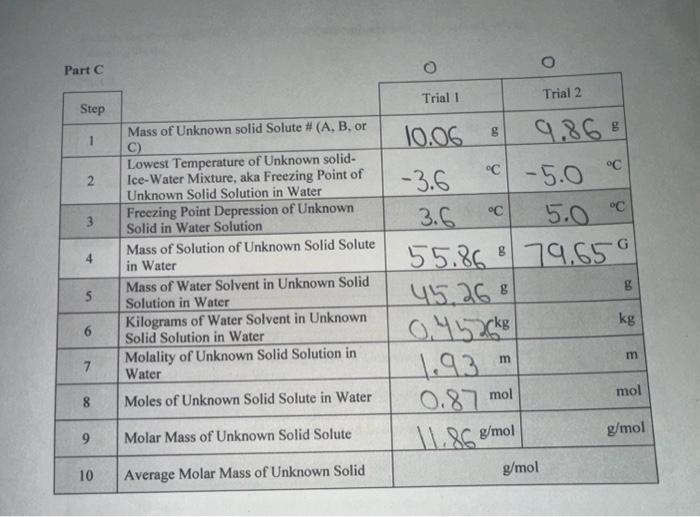 Part C
O O
Step Trial 1 Trial 2
1 Mass of Unknown solid Solute # (A, B, or C) 10.06 g 9.86 g
2 Lowest Temperature of Unknown solid-
Ice-Water Mixture, aka Freezing Point of
Unknown Solid Solution in Water -3.6 °C -5.0 °C
3 Freezing Point Depression of Unknown
Solid in Water Solution 3.6 °C 5.0 °C
4 Mass of Solution of Unknown Solid Solute
in Water 55.86 g 79.65 G
5 Mass of Water Solvent in Unknown Solid
Solution in Water 45.26 g g
6 Kilograms of Water Solvent in Unknown
Solid Solution in Water 0.4526 kg kg
7 Molality of Unknown Solid Solution in
Water 1.93 m m
8 Moles of Unknown Solid Solute in Water 0.87 mol mol
9 Molar Mass of Unknown Solid Solute 11.86 g/mol g/mol
10 Average Molar Mass of Unknown Solid g/mol